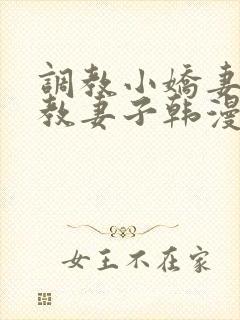 調教小嬌妻
教妻子韩漫
女王不在家